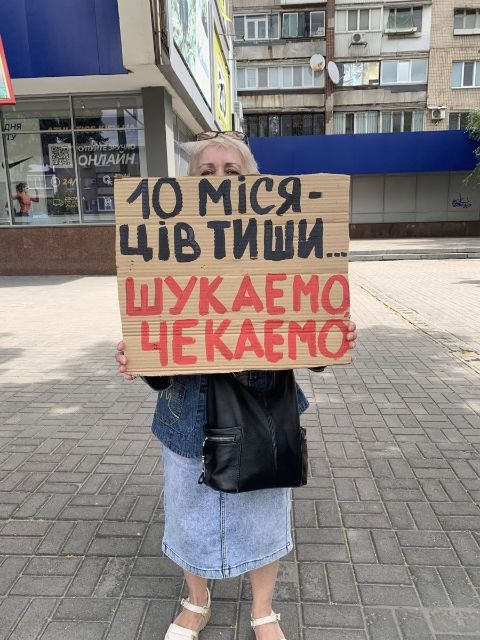 10 МІСЯ-
ЦІВ ТИШИ...
ШУКАЄМО,
ЧЕКАЄМО
ОНЛАЙН
24/7